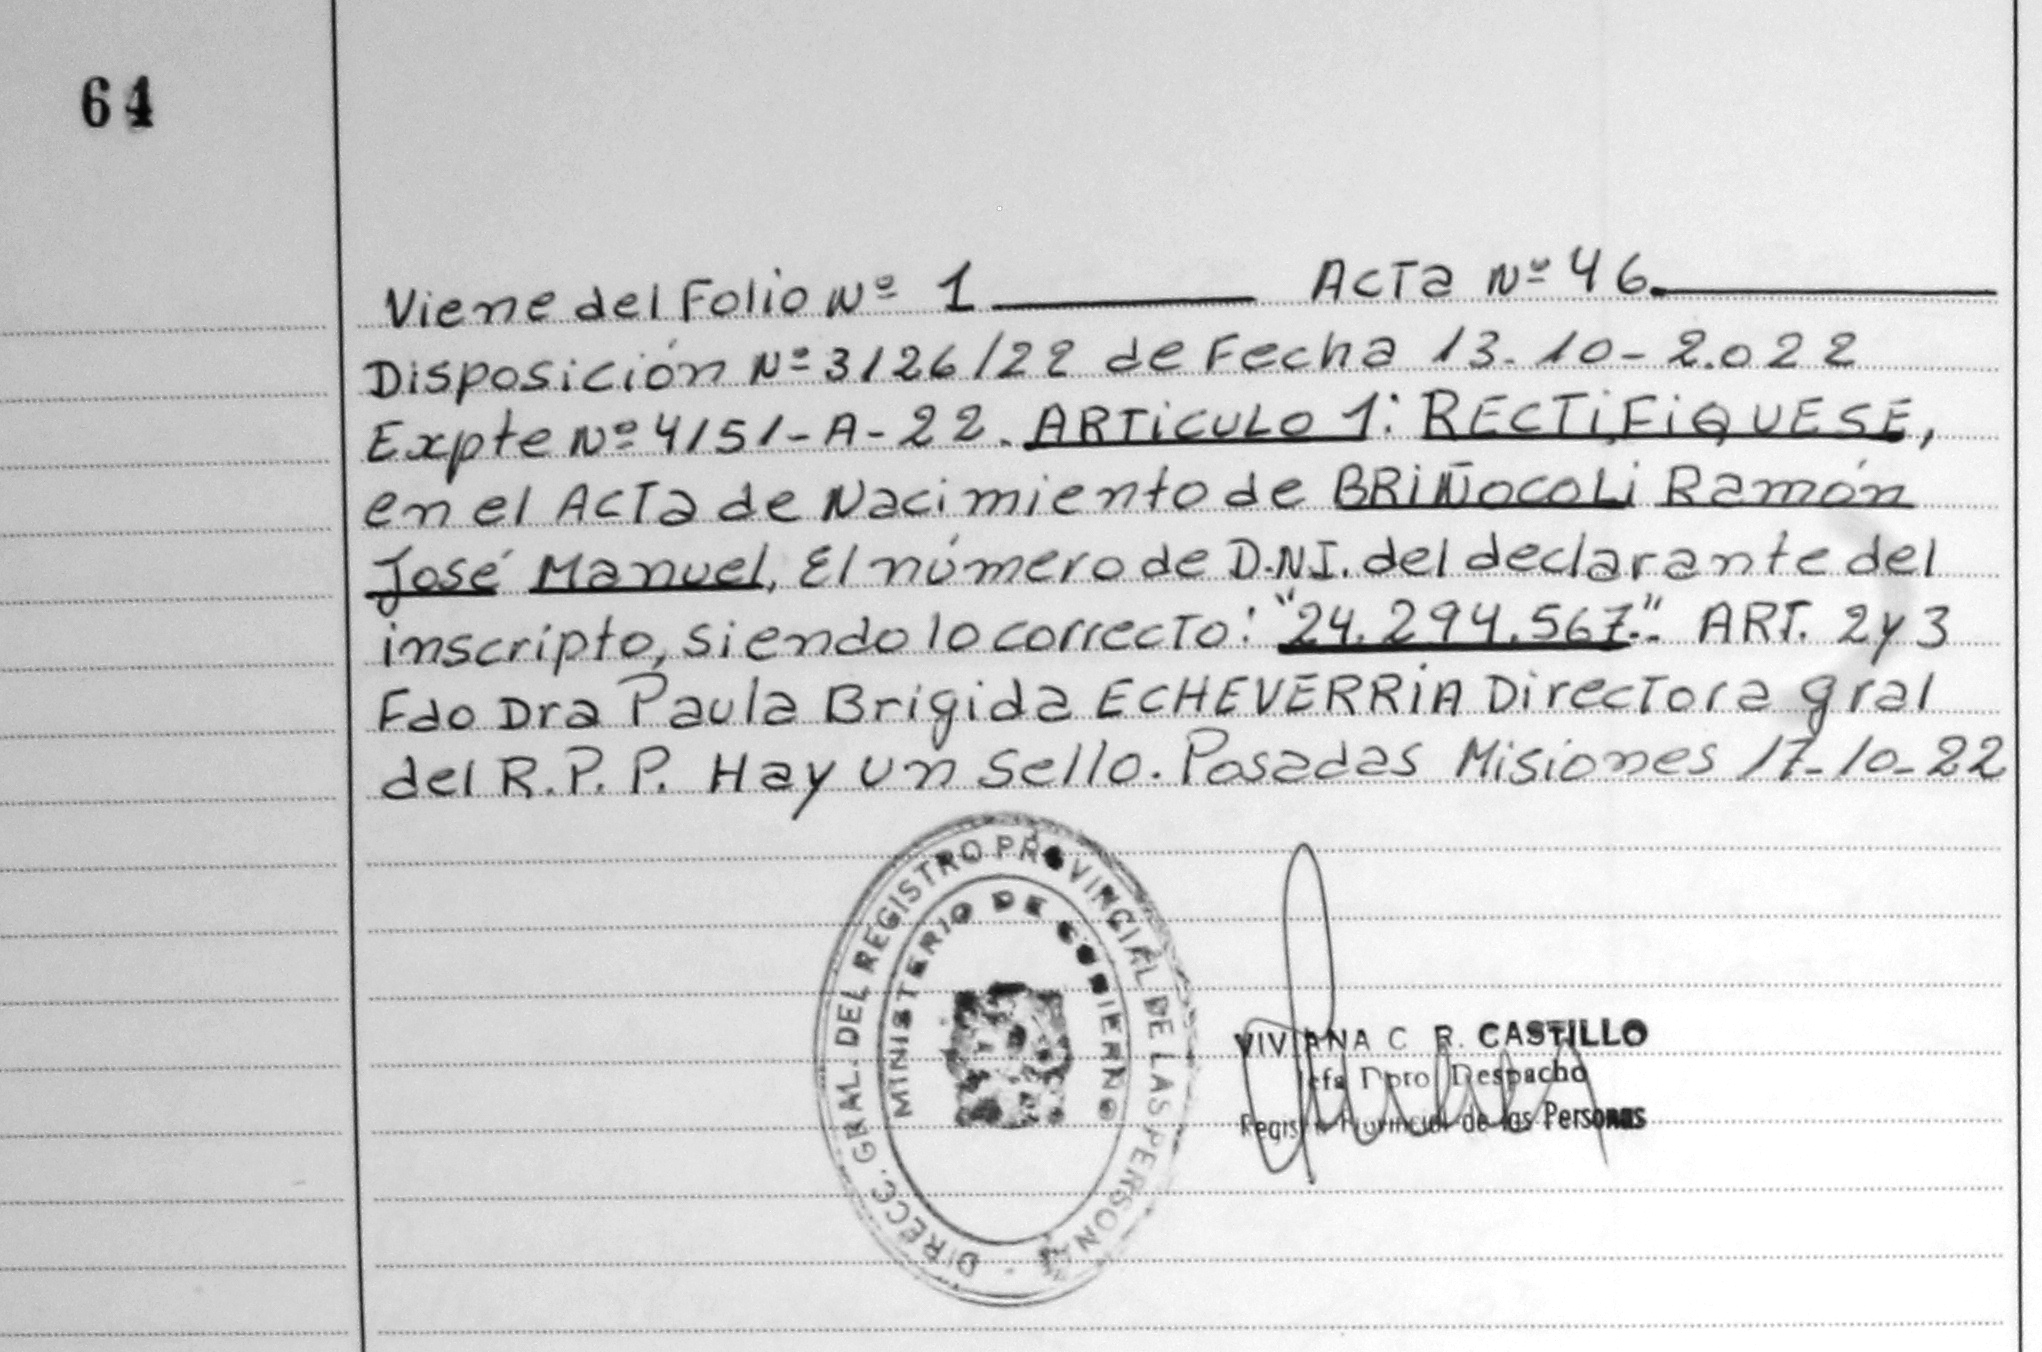 64
Viene del Folio Nº 1 Acta Nº 46
Disposición Nº 3126/22 de Fecha 13-10-2.022
Expte Nº 4151-A-22. ARTICULO 1: RECTIFIQUESE,
en el Acta de Nacimiento de BRIÑOCOLI Ramón
José Manuel, El número de D.N.I. del declarante del
inscripto, siendo lo correcto: "24.294.567." ART. 2 y 3
Fdo Dra Paula Brigida ECHEVERRIA Directora gral
del R.P.P. Hay un Sello. Posadas Misiones 17-10-22
DIRECC. GRAL. DEL REGISTRO PROVINCIAL DE LAS PERSONAS
MINISTERIO DE GOBIERNO
VIVIANA C. R. CASTILLO
Jefa Dpto Despacho
Registro Provincial de las Personas